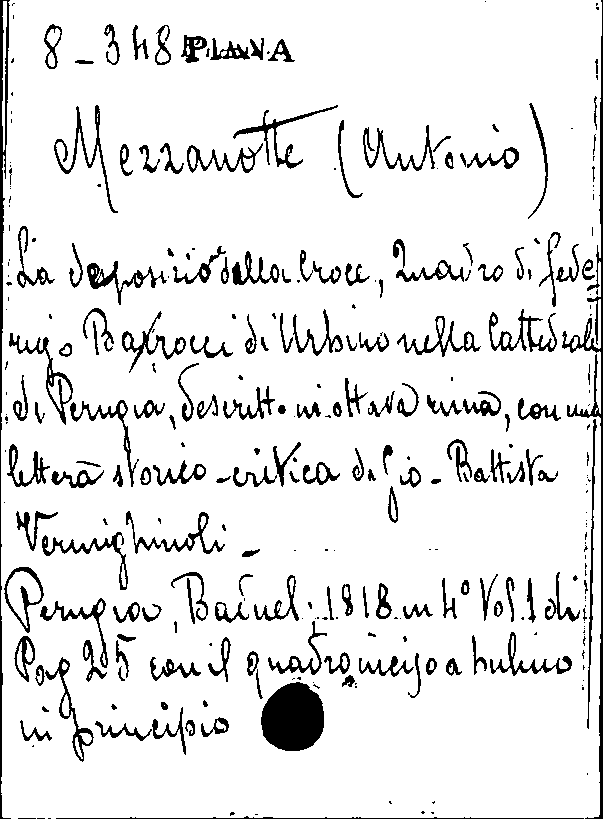 8-348 PIANA
Mezzanotte (Antonio)
La deposizione dalla Croce, Quadro di Fede
rigo Barocci di Urbino nella Cattedrale
di Perugia, descritto in ottava rima, con una
lettera storico-critica di Gio-Battista
Vermiglinoli-
Perugia, Baduel, 1818 in 4° Vol. 1 di
Pag 25 con il quadro inciso a bulino
in principio